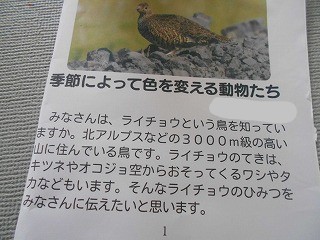 季節によって色を変える動物たち
みなさんは、ライチョウという鳥を知ってい
ますか。北アルプスなどの3000m級の高い
山に住んでいる鳥です。ライチョウのてきは、
キツネやオコジョ空からおそってくるワシやタ
カなどもいます。そんなライチョウのひみつを
みなさんに伝えたいと思います。
1